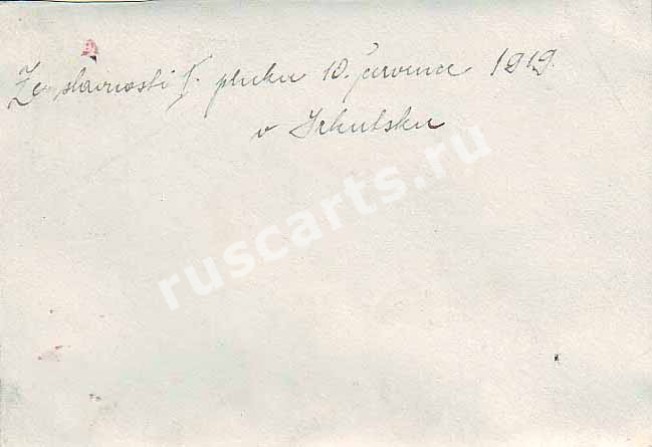 Ze slavnosti I. pluku 10. července 1919.
v Irkutsku
ruscarts.ru